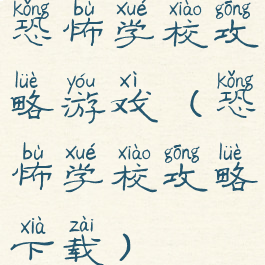 kǒng bù xué xiào gōng
恐怖学校攻
lüè yóu xì kǒng
略游戏（恐
bù xué xiào gōng lüè
怖学校攻略
xià zài
下载）